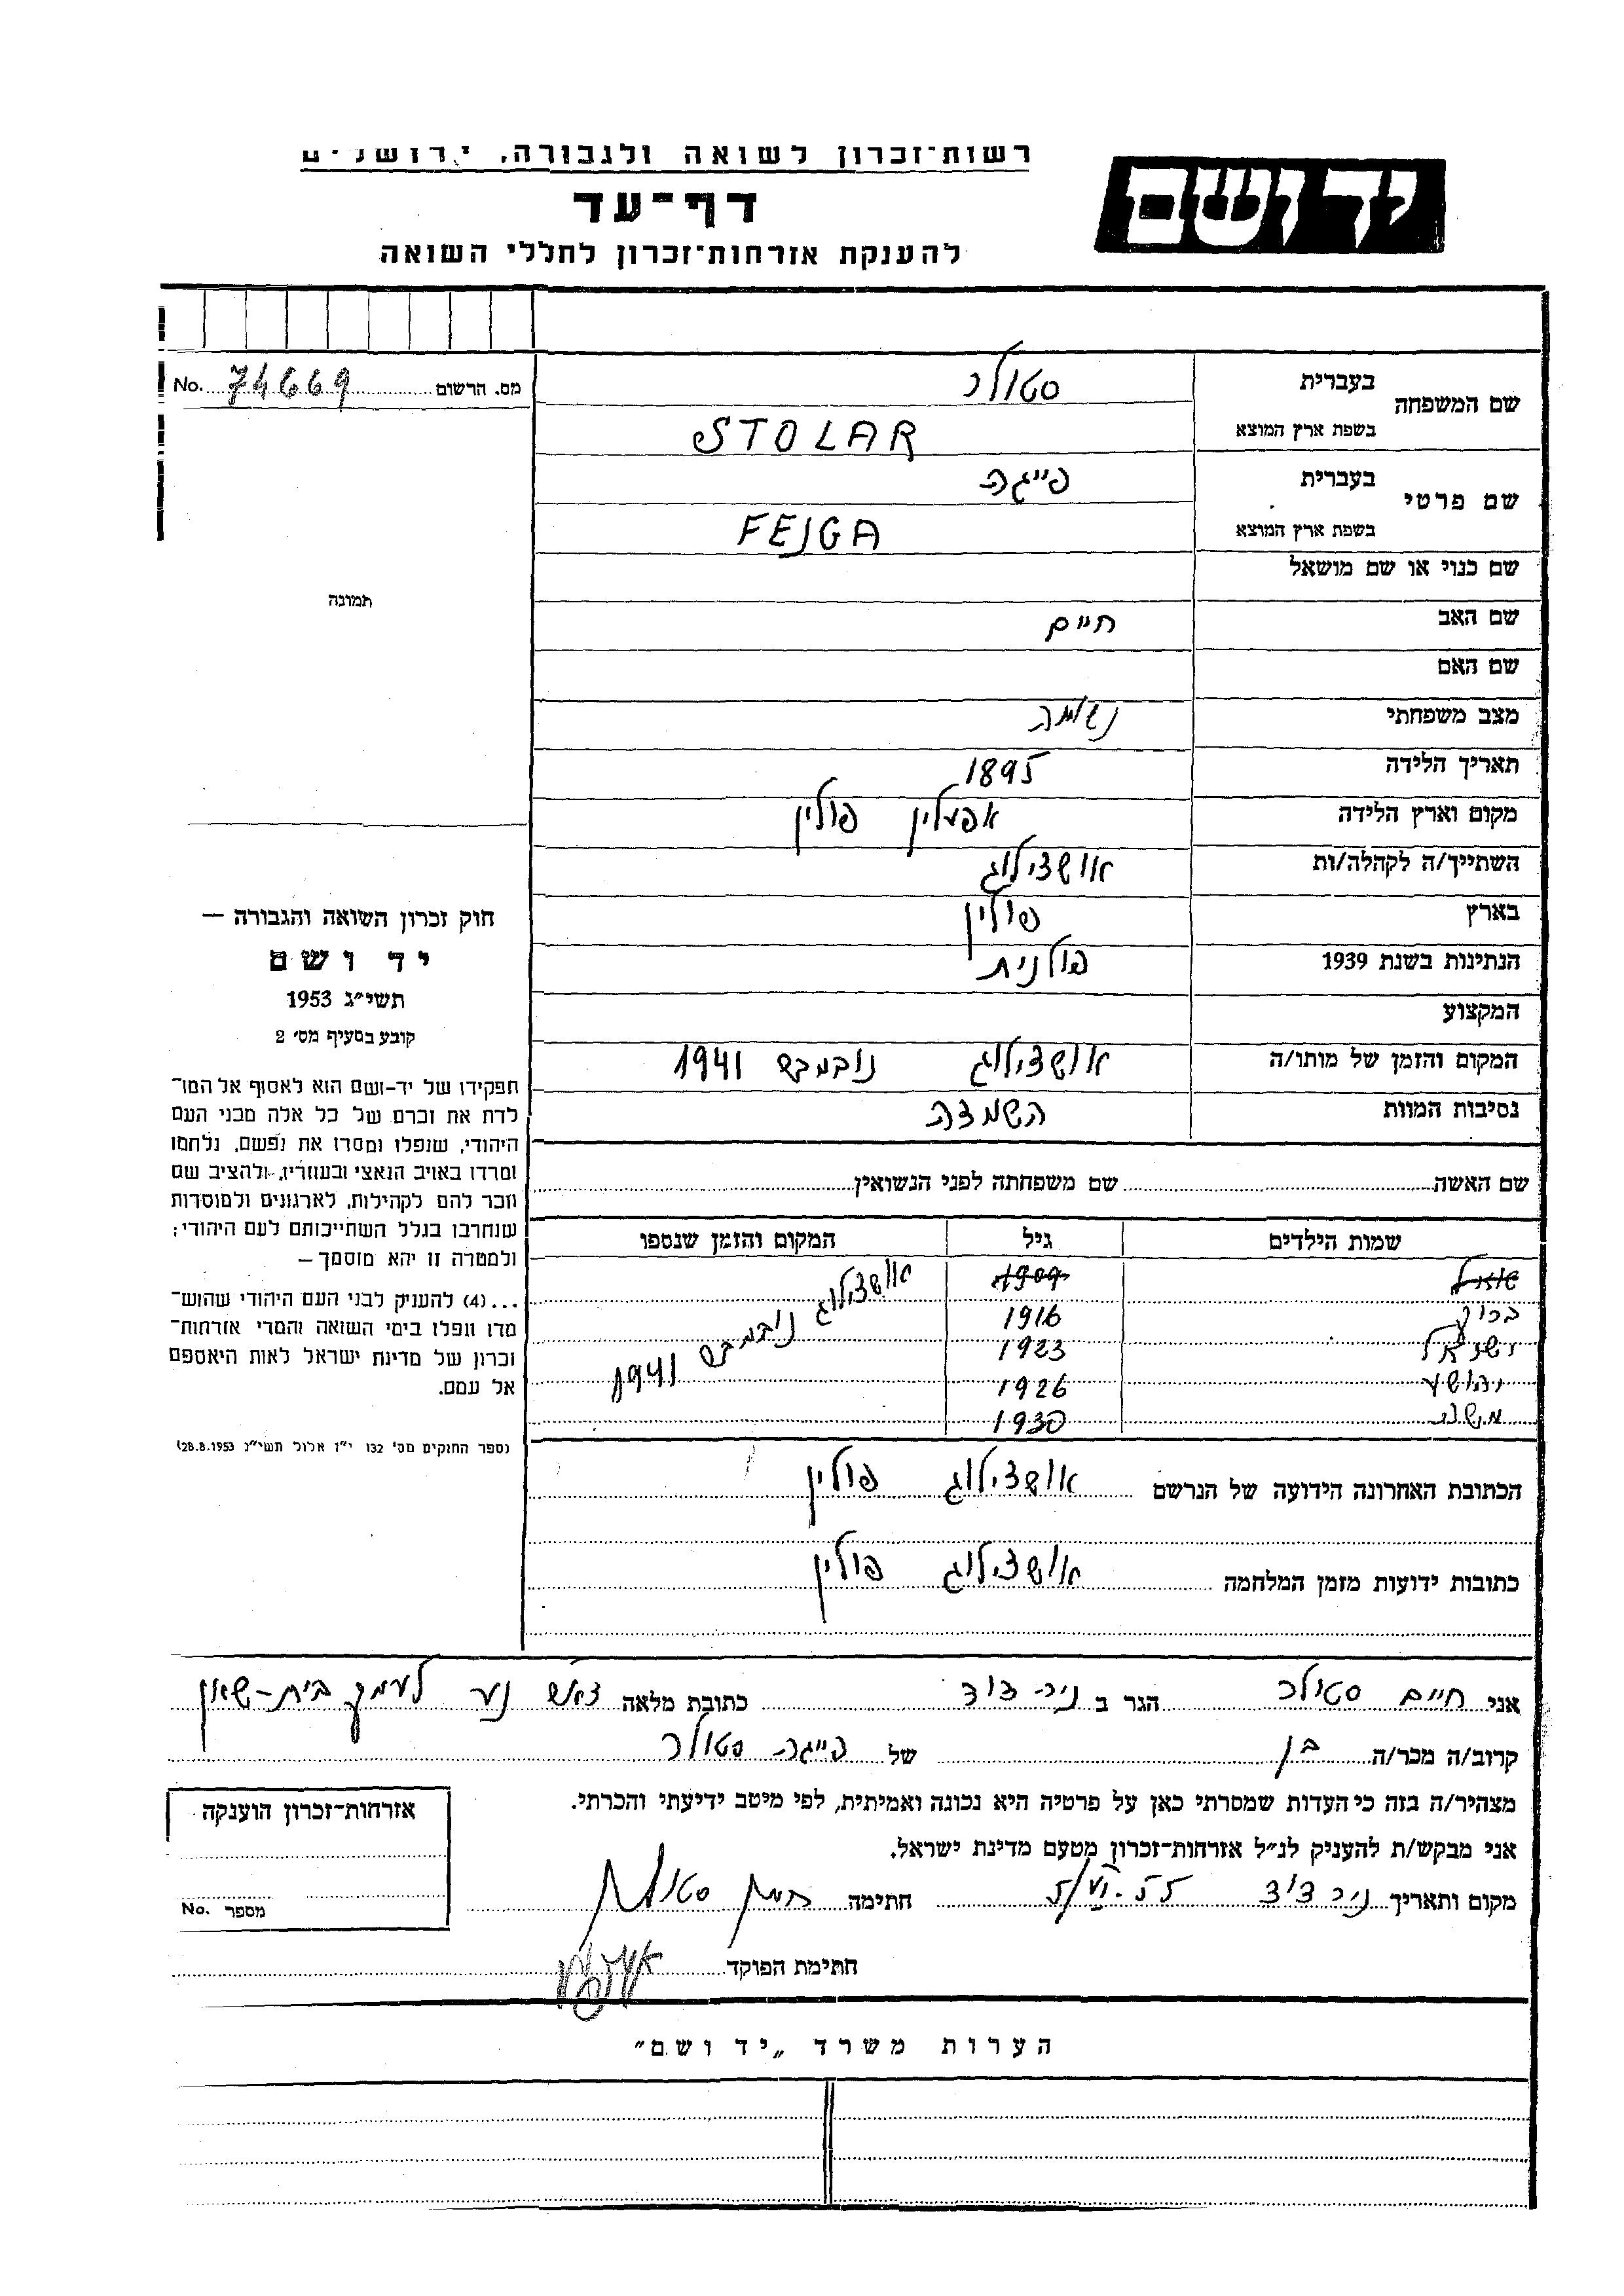 רשות־זכרון לשואה ולגבורה, ירושלים
יד ושם
דף־עד
להענקת אזרחות־זכרון לחללי השואה
מס. הרשום 74669 No.
שם המשפחה
בעברית סטולר
בשפת ארץ המוצא STOLAR
שם פרטי
בעברית פייגה
בשפת ארץ המוצא FEJGA
שם כנוי או שם מושאל
תמונה
שם האב חיים
שם האם
מצב משפחתי נשואה
תאריך הלידה 1895
מקום וארץ הלידה פולין
השתייך/ה לקהלה/ות אושצילוג
בארץ פולין
הנתינות בשנת 1939 פולנית
המקצוע
המקום והזמן של מותו/ה אושצילוג נובמבר 1941
נסיבות המוות השמדה
חוק זכרון השואה והגבורה —
יד ושם
תשי״ג 1953
קובע בסעיף מס׳ 2
תפקידו של יד-ושם הוא לאסוף אל המו־
לדת את זכרם של כל אלה מבני העם
היהודי, שנפלו ומסרו את נפשם, נלחמו
ומרדו באויב הנאצי ובעוזריו, ולהציב שם
וזכר להם לקהילות, לארגונים ולמוסדות
שנחרבו בגלל השתייכותם לעם היהודי;
ולמטרה זו יהא מוסמך —
...(4) להעניק לבני העם היהודי שהוש־
מדו ונפלו בימי השואה והמרי אזרחות־
זכרון של מדינת ישראל לאות היאספם
אל עמם.
(ספר החוקים מס׳ 132 י״ז אלול תשי״ג 28.8.1953)
שם האשה שם משפחתה לפני הנשואין
שמות הילדים גיל המקום והזמן שנספו
1909 אושצילוג נובמבר 1941
ברוך 1916
ישראל 1923
יהושע 1926
1930
הכתובת האחרונה הידועה של הנרשם אושצילוג פולין
כתובות ידועות מזמן המלחמה אושצילוג פולין
אני חיים סטולר הגר ב ניר-דוד כתובת מלאה דאר נע לעמק בית-שאן
קרוב/ה מכר/ה בן של פייגה סטולר
מצהיר/ה בזה כי העדות שמסרתי כאן על פרטיה היא נכונה ואמיתית, לפי מיטב ידיעתי והכרתי.
אני מבקש/ת להעניק לנ״ל אזרחות־זכרון מטעם מדינת ישראל.
מקום ותאריך ניר דוד חתימה חיים סטולר
חתימת הפוקד
אזרחות־זכרון הוענקה
מספר No.
הערות משרד „יד ושם״